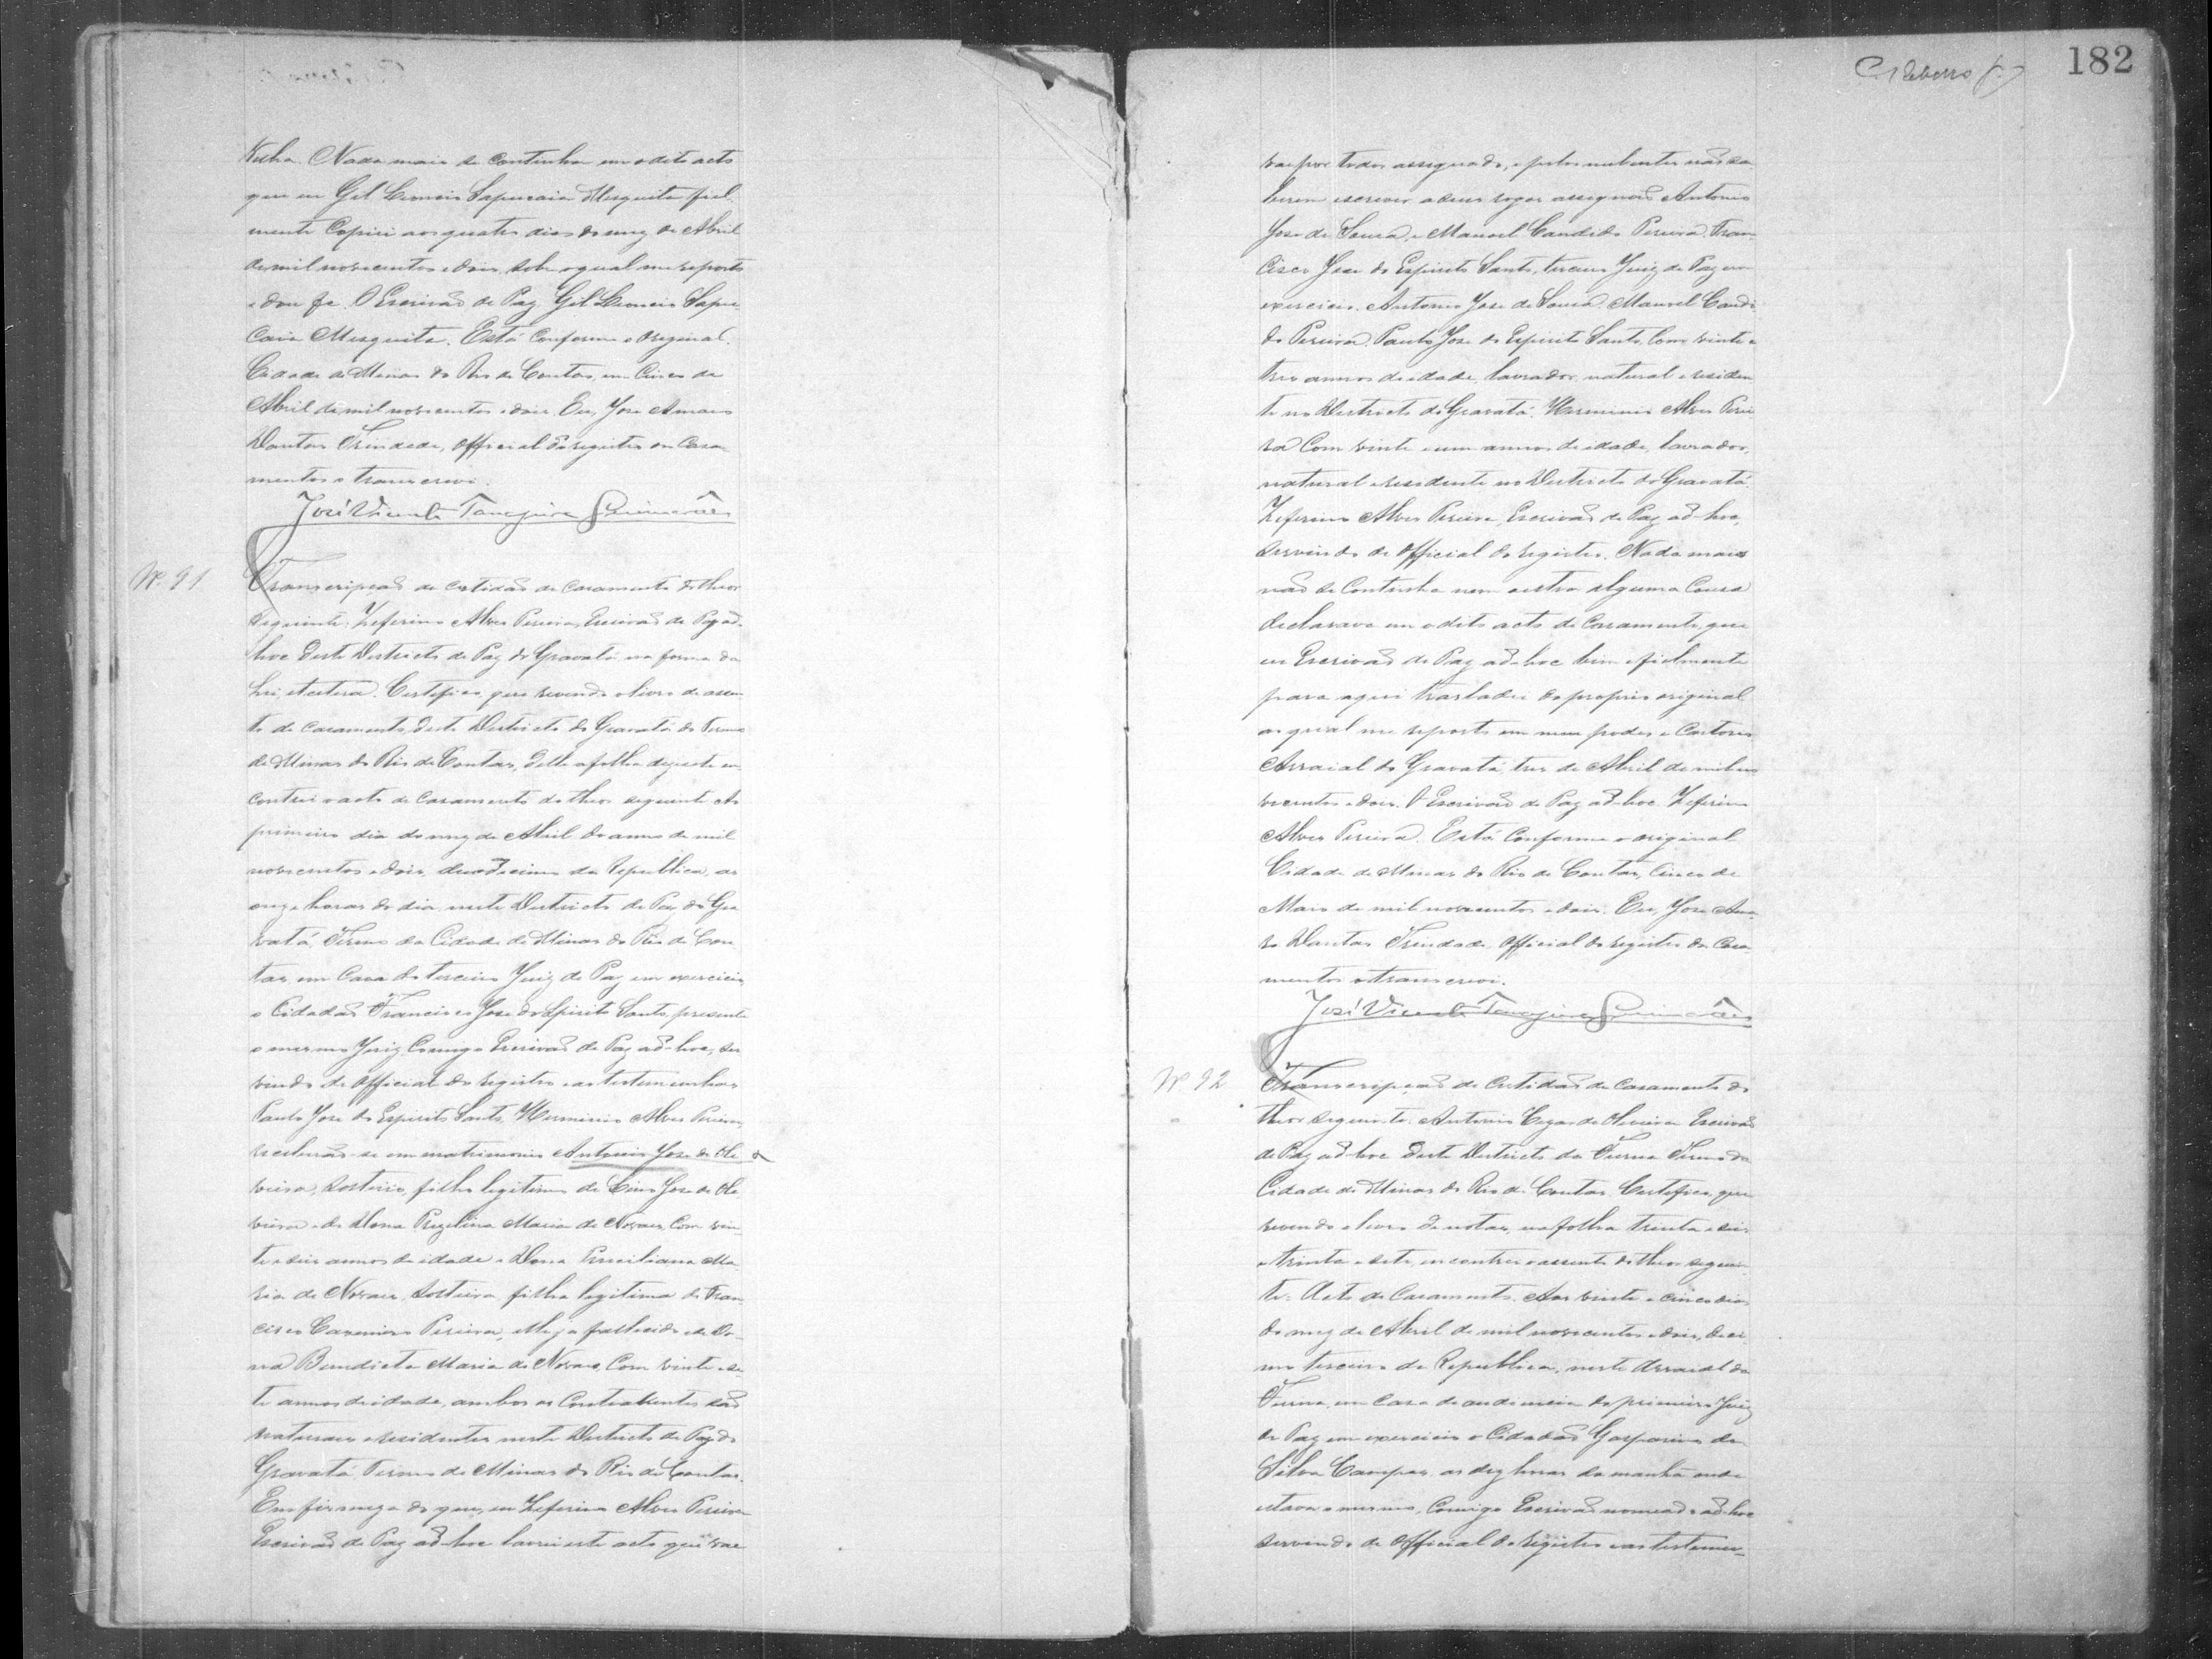 Nada mais se continha em o dito acto
que eu Gil Leoncio Sapucaia Mesquita fiel
mente Copiei aos quatro dias do mez de Abril
de mil novecentos e dois, sobre o qual me reporto
e dou fe. O Escrivaõ de Paz Gil Leoncio Sapu
caia Mesquita. Está Conforme o Original.
Cidade de Minas do Rio de Contas, em Cinco de
Abril de mil novecentos e dois. Eu, Jose Amaro
Dantas Trindade, Official do registro de Casa
mentos o transcrevi.
José Vicente Tanajura Guimarães
Nº 91
Transcripçaõ de Certidaõ de Casamento do theor
seguinte: Zeferino Alves Pereira, Escrivaõ de Paz ad-
hoc deste Districto de Paz do Gravatá na forma da
Lei etcetera. Certifico, que revendo o livro de assen
to de casamento deste Districto do Gravatá do Termo
de Minas do Rio de Contas, delle a folha dezesete en
contrei o acto de Casamento do theor seguinte Ao
primeiro dia do mez de Abril do anno de mil
novecentos e dois, duodecimo da Republica, as
onze horas do dia, neste Districto de Paz do Gra
vatá, Termo da Cidade de Minas do Rio de Con
tas, em Casa do terceiro Juiz de Paz em exercicio
o Cidadaõ Francisco Jose do Spirito Santo, presente
o mesmo Juiz, Comigo Escrivaõ de Paz ad-hoc, ser
vindo de Official do registro e as testemunhas
Paulo Jose do Espirito Santo, Herminio Alves Pereira,
receberaõ-se em matrimonio Antonio Jose de Oli
veira, solteiro, filho legitimo de Jose de Oli
veira e de Dona Maria de Novaes, Com vin
te e seis annos de idade e Dona Ma
ria de Novaes, Solteira, filha legitima de Fran
cisco Pereira, elle ja fallecido e de Do
na Benedicta Maria de Novaes, Com vinte e se
te annos de idade, ambos os Contrahentes saõ
naturaes e residentes neste Districto de Paz do
Gravatá Termo de Minas do Rio de Contas.
Em firmeza do que, eu Zeferino Alves Pereira
Escrivaõ de Paz ad-hoc lavrei este acto que vae
182
vae por todos assignado, e pelos nubentes naõ sa
berem escrever a seus rogos assignaõ Antonio
Jose de Sousa, e Manoel Candido Pereira. Fran
cisco Jose do Espirito Santo, terceiro Juiz de Paz em
exercicio. Antonio Jose de Sousa. Manoel Candi
do Pereira. Paulo Jose do Espirito Santo, Com vinte e
tres annos de idade, lavrador, natural e residen
te no Districto do Gravatá. Herminio Alves Perei
ra Com vinte e um annos de idade, lavrador,
natural e residente no Districto do Gravatá.
Zeferino Alves Pereira, Escrivaõ de Paz ad-hoc,
servindo de Official do registro. Nada mais
naõ se Continha nem outra alguma Cousa
declarava em o dito acto de Casamento, que
eu Escrivaõ de Paz ad-hoc bem e fielmente
para aqui trasladei do proprio original
ao qual me reporto em meu poder e Cartorio
Arraial do Gravatá, tres de Abril de mil no
vecentos e dois. O Escrivaõ de Paz ad-hoc Zeferino
Alves Pereira. Está Conforme o original
Cidade de Minas do Rio de Contas, Cinco de
Maio de mil novecentos e dois. Eu, Jose Ama
ro Dantas Trindade, Official do registro de Casa
mentos o transcrevi.
José Vicente Tanajura Guimarães
Nº 92
Transcripçaõ de Certidaõ de Casamento do
theor seguinte: Antonio de Oliveira Escrivaõ
de Paz ad-hoc deste Districto da Furna Termo da
Cidade de Minas do Rio de Contas. Certifico, que
revendo o livro de notas, na folha trinta e seis
e trinta e sete, encontrei o assento do theor seguin
te: Acto de Casamento. Aos vinte e cinco dias
do mez de Abril de mil novecentos e dois, deci
mo terceiro da Republica, neste Arraial da
Furna, em Casa de audiencia do primeiro Juiz
de Paz em exercicio o Cidadaõ Gasparino da
Silva Campos, as dez horas da manhã onde
estava o mesmo, Comigo Escrivaõ nomeado ad-hoc
servindo de Official do registro e as testemu-